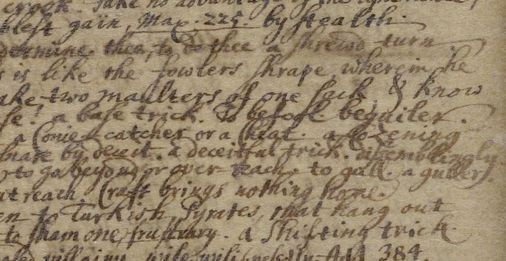 crook. Take no advantage of the
blest gain, Max. 225. by stealth.
determine thee, to do thee a shrewd turn
is like the fowlers shrape, wherein he
take two maulters of one sack & I know
a base trick. To befole beguiler.
a Conie catcher or a cheat. a cozening
snare by deceit. a deceitful trick. dissemblingly
to go beyond or over reach. to gull. a guller.
outreach. Craft brings nothing home.
to Turkish Pyrates, that hang out
to sham one, frustrary. a shifting trick.
villainy, wife 384.